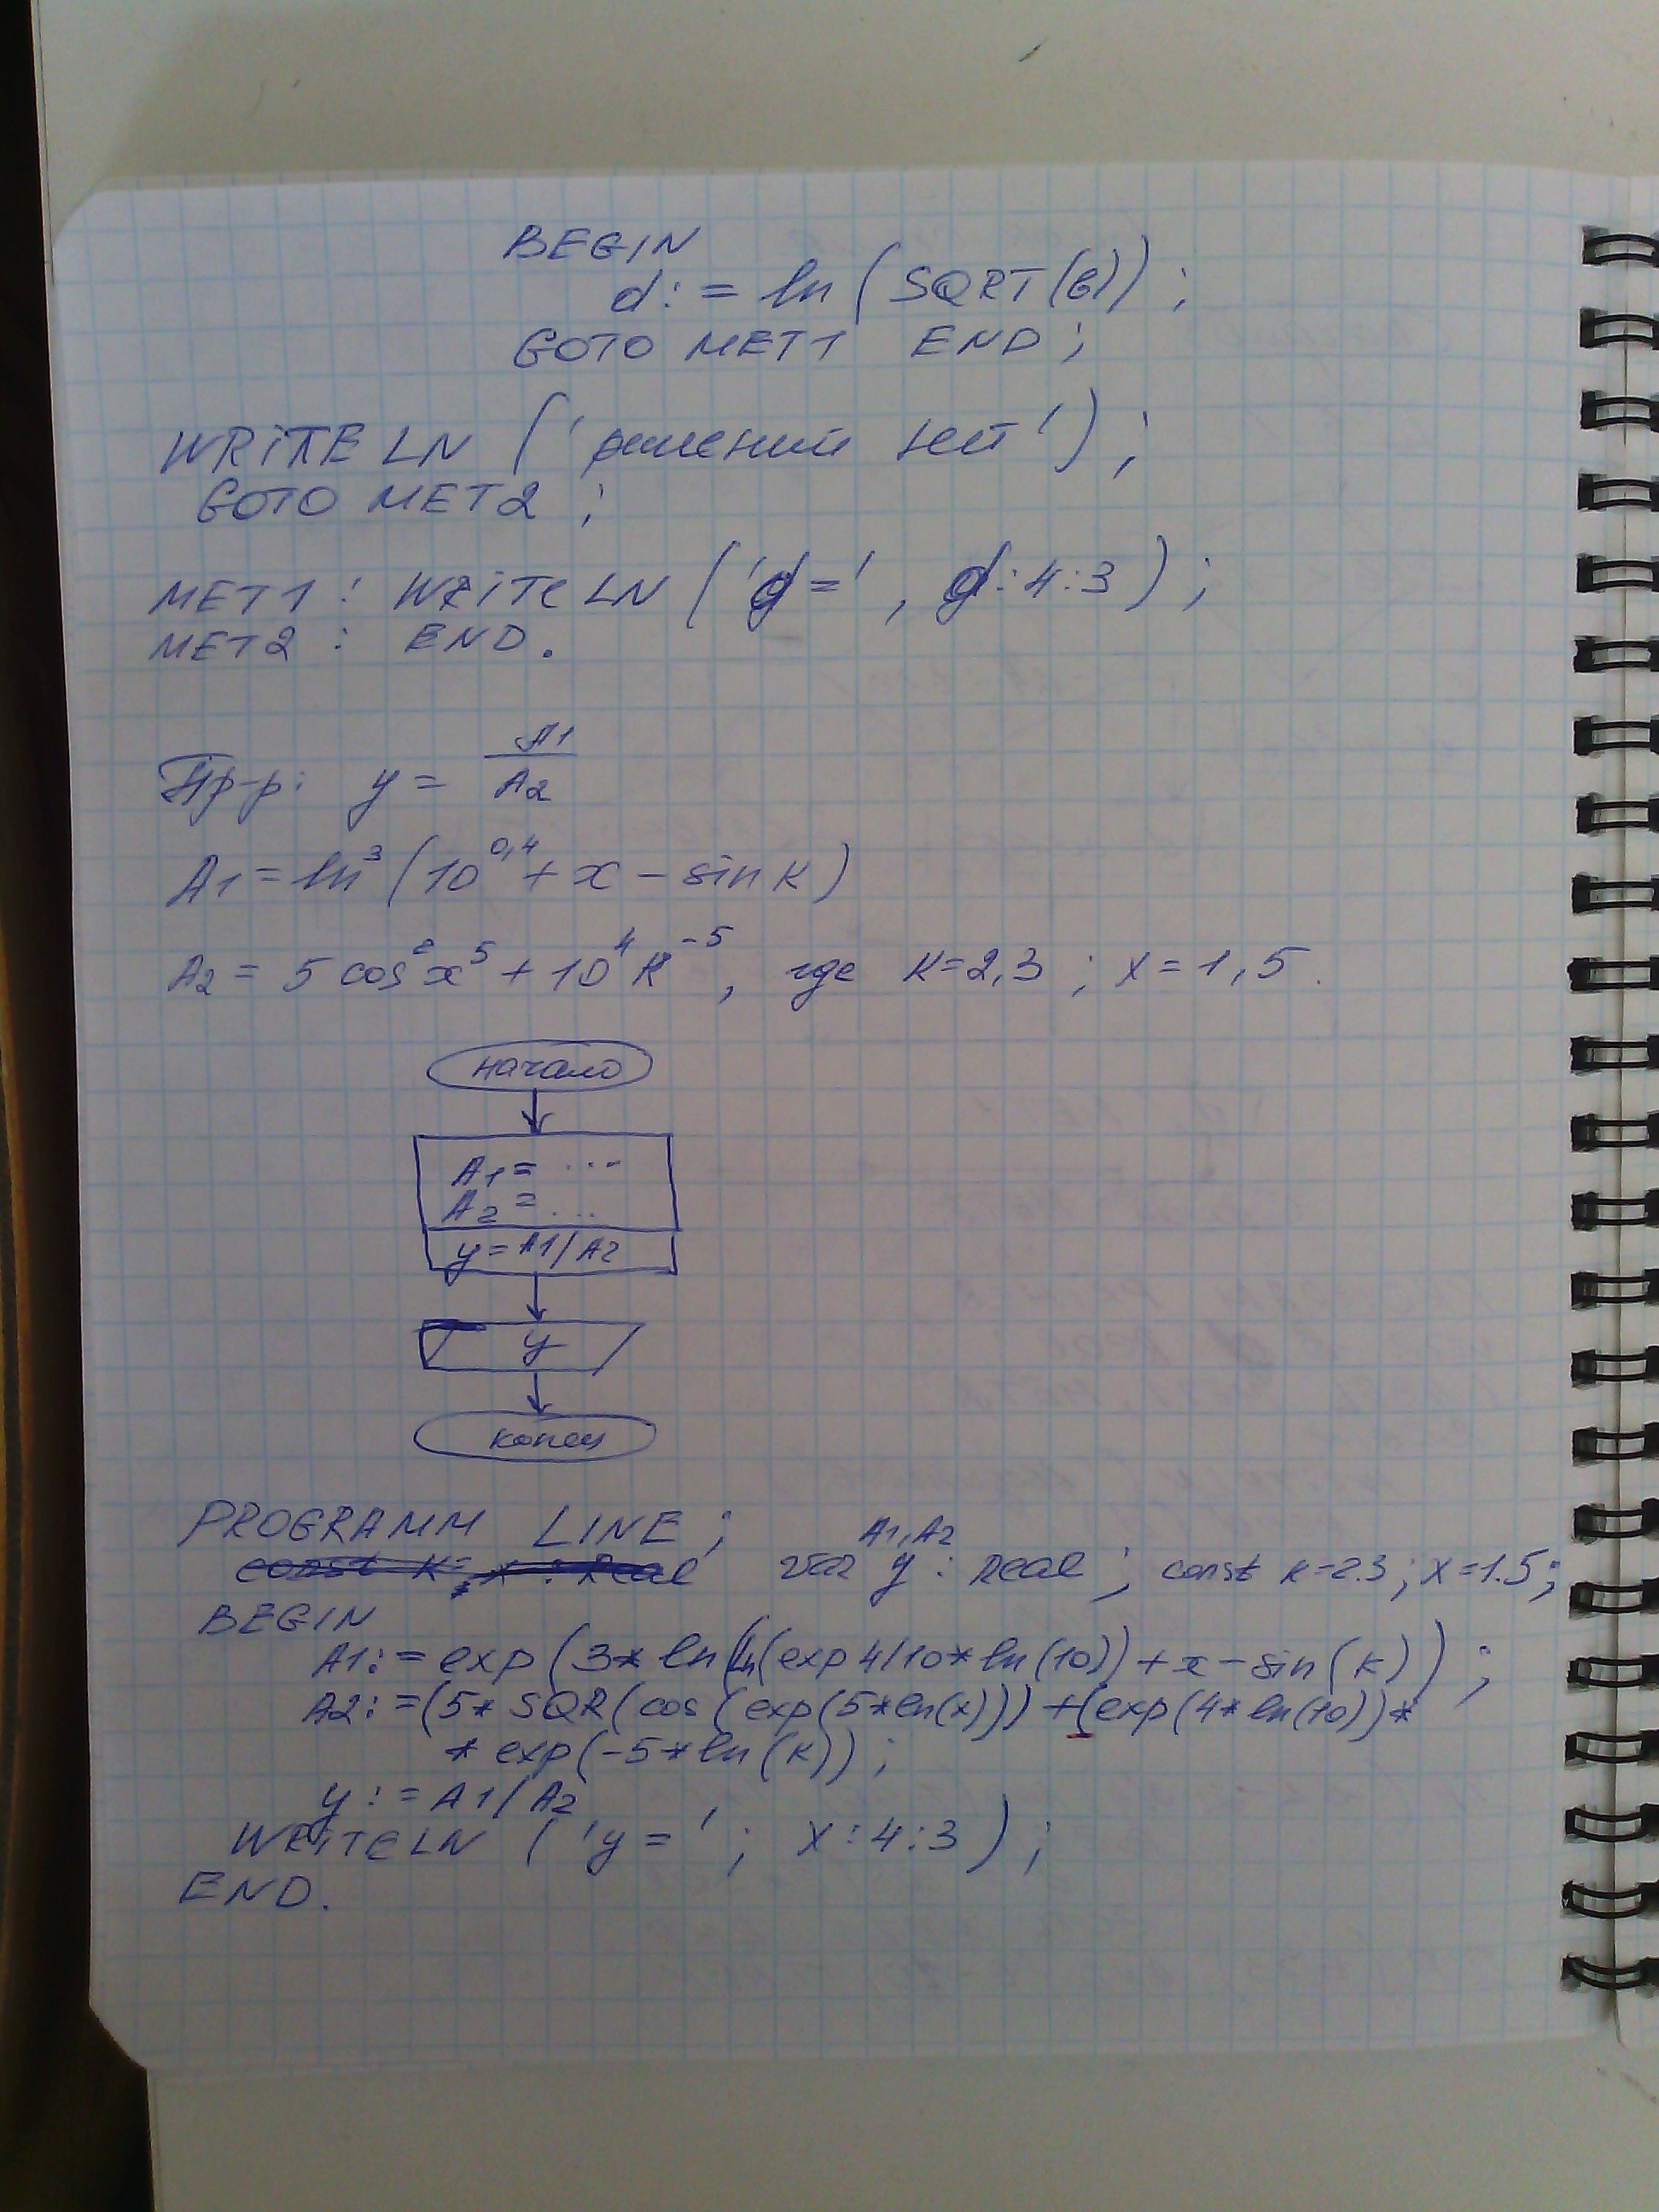 BEGIN
d := ln (SQRT(b));
GOTO MET1 END;
WRITELN ('решений нет');
GOTO MET2;
MET1: WRITELN ('d=', d:4:3);
MET2: END.
Пр-р: y = A1/A2
A1 = ln³(10^0,4 + x - sin k)
A2 = 5 cos²x⁵ + 10⁴ k⁻⁵, где k=2,3; x=1,5.
начало
A1 = ...
A2 = ...
y=A1/A2
y
конец
PROGRAMM LINE;
const k=, x : Real var y A1,A2 : Real; const k=2.3; x=1.5;
BEGIN
A1:=exp(3*ln(ln(exp 4/10*ln(10))+x-sin(k));
A2:=(5*SQR(cos(exp(5*ln(x)))+(exp(4*ln(10))*
*exp(-5*ln(k));
y:=A1/A2
WRITELN ('y='; x:4:3);
END.